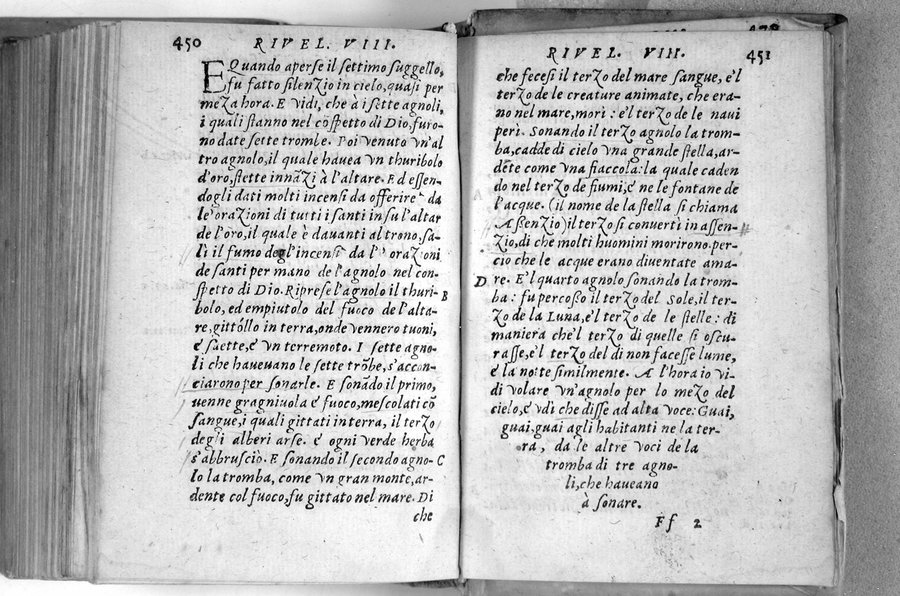 450 RIVEL. VIII.
E Quando aperse il settimo suggello,
fu fatto silenzio in cielo, quasi per
meza hora. E vidi, che à i sette agnoli,
i quali stanno nel cõspetto di Dio, furo-
no date sette trombe. Poi venuto vn'al
tro agnolo, il quale hauea vn thuribolo
d'oro, stette innãzi à l'altare. Ed essen-
dogli dati molti incensi da offerire da
le orazioni di tutti i santi in su l'altar
de l'oro, il quale è dauanti al trono, sa-
lì il fumo degl'incensi da l' orazioni
de santi per mano de l'agnolo nel con-
spetto di Dio. Riprese l'agnolo il thuri-
B
bolo, ed empiutolo del fuoco de l'alta-
re, gittòllo in terra, onde vennero tuoni,
e saette, e vn terremoto. I sette agno-
li che haueuano le sette trõbe, s'accon-
ciarono per sonarle. E sonãdo il primo,
uenne gragniuola e fuoco, mescolati cõ
sangue, i quali gittati in terra, il terzo
degli alberi arse. e ogni verde herba
s'abbrusciò. E sonando il secondo agno-
C
lo la tromba, come vn gran monte, ar-
dente col fuoco, fu gittato nel mare. Di
che
RIVEL. VIII. 451
che fecesi il terzo del mare sangue, e'l
terzo de le creature animate, che era-
no nel mare, morì: e'l terzo de le naui
perì. Sonando il terzo agnolo la trom-
ba, cadde di cielo vna grande stella, ar-
dẽte come vna fiaccola: la quale caden
do nel terzo de fiumi, e ne le fontane de
l'acque. (il nome de la stella si chiama
Assenzio) il terzo si conuertì in assen-
zio, di che molti huomini morirono: per-
cio che le acque erano diuentate ama-
D
re. E'l quarto agnolo sonando la trom-
ba: fu percosso il terzo del Sole, il ter-
zo de la Luna, e'l terzo de le stelle: di
maniera che'l terzo di quelle si oscu-
rasse, e'l terzo del dì non facesse lume,
e la notte similmente. A l'hora io vi-
di volare vn'agnolo per lo mezo del
cielo, e vdì che disse ad alta voce: Guai,
guai, guai agli habitanti ne la ter-
ra, da le altre voci de la
tromba di tre agno-
li, che haueano
à sonare.
Ff 2